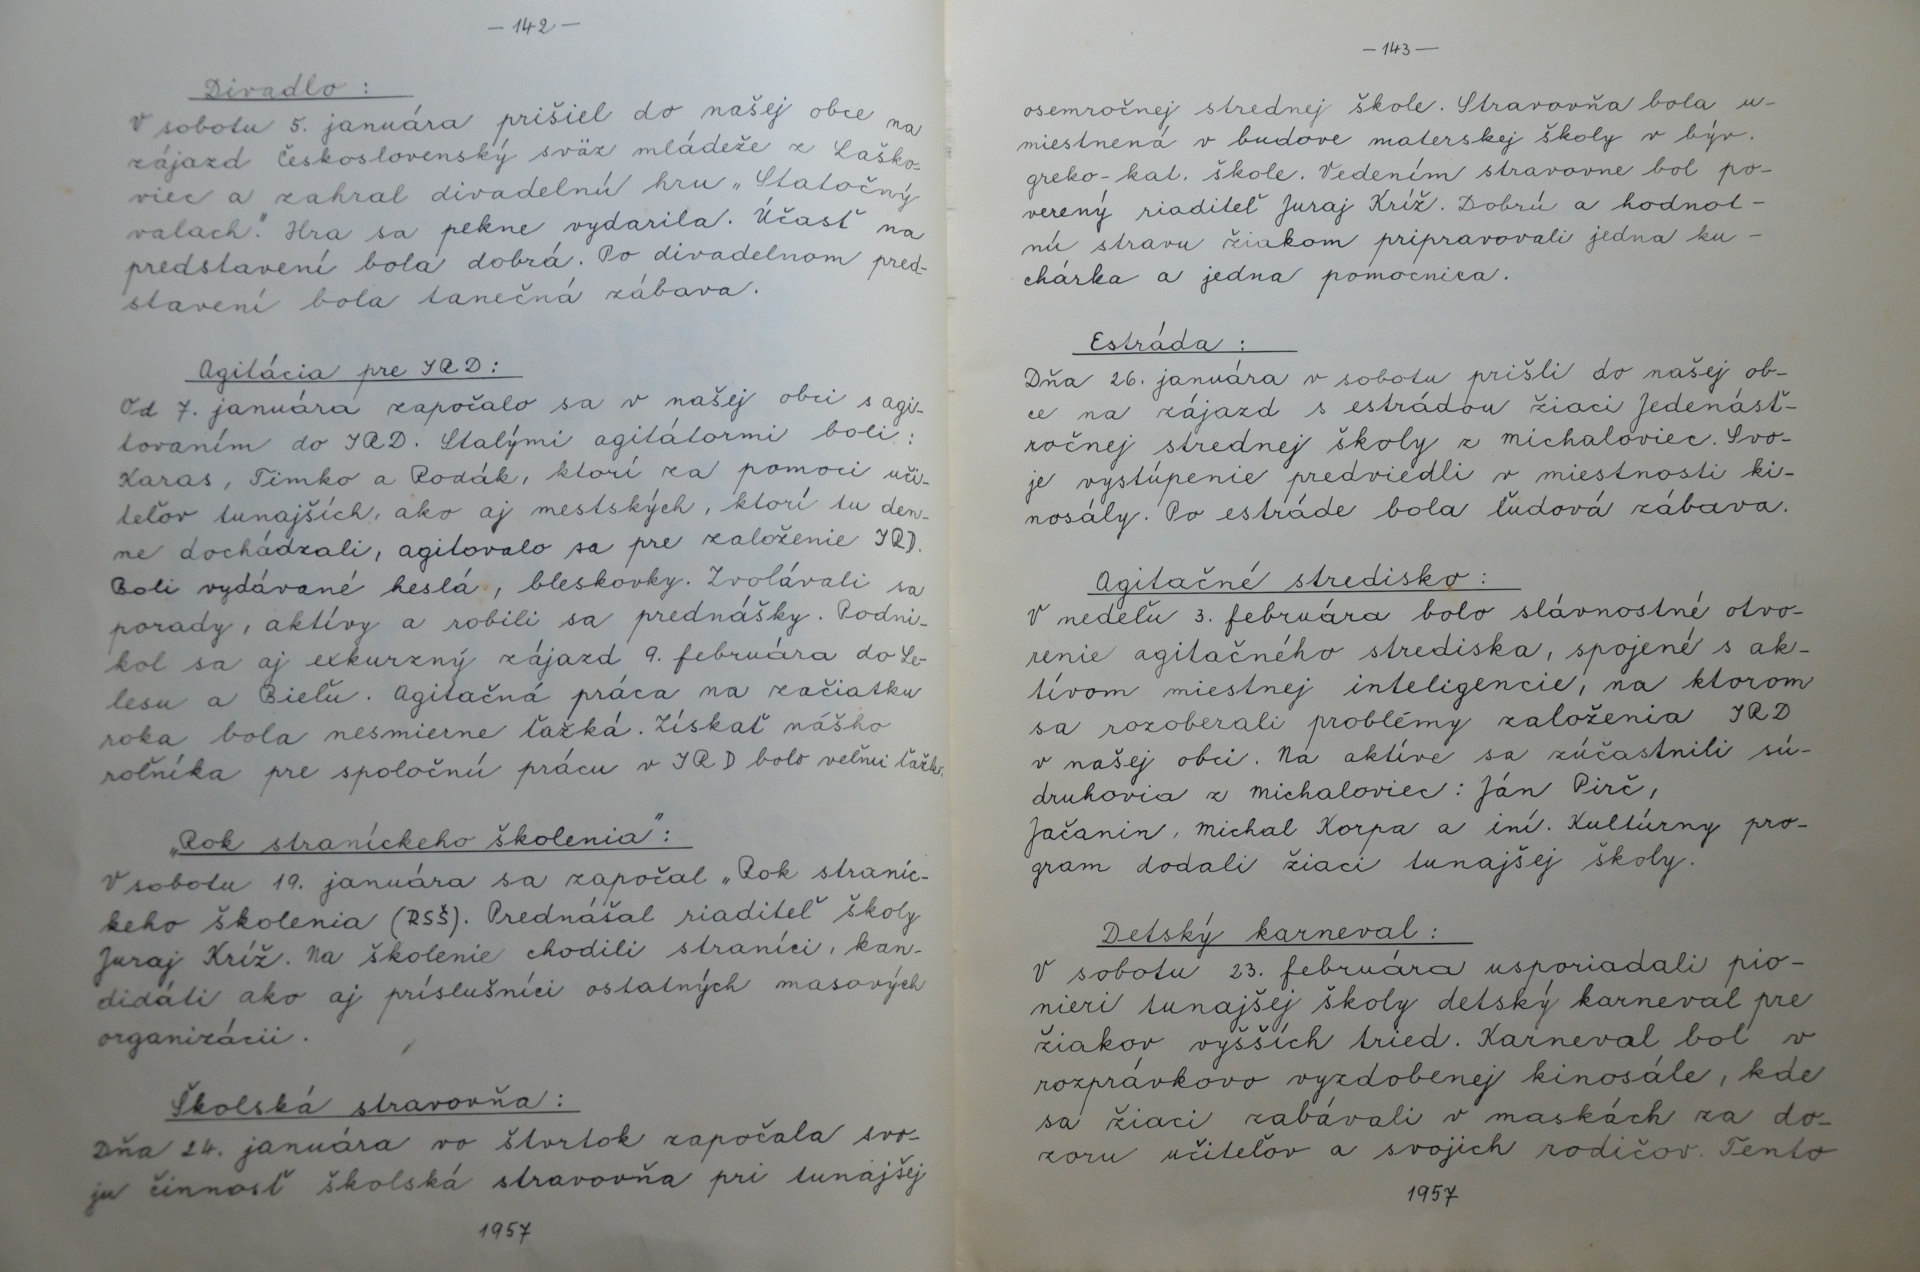 — 142 —
Divadlo :
V sobotu 5. januára prišiel do našej obce na
zájazd Československý sväz mládeže z Laško-
viec a zahral divadelnú hru „Statočný
valach." Hra sa pekne vydarila. Účasť na
predstavení bola dobrá. Po divadelnom pred-
stavení bola tanečná zábava.
Agitácia pre JRD :
Od 7. januára započalo sa v našej obci s agi-
tovaním do JRD. Stalými agitátormi boli :
Karas, Timko a Rodák, ktorí za pomoci uči-
teľov tunajších, ako aj mestských, ktorí tu den-
ne dochádzali, agitovalo sa pre založenie JRD.
Boli vydávané heslá, bleskovky. Zvolávali sa
porady, aktívy a robili sa prednášky. Podni-
kol sa aj exkurzný zájazd 9. februára do Le-
lesu a Bieľu. Agitačná práca na začiatku
roka bola nesmierne ťažká. Získať nášho
roľníka pre spoločnú prácu v JRD bolo veľmi ťažko.
„Rok straníckeho školenia" :
V sobotu 19. januára sa započal „Rok straníc-
keho školenia (RSŠ). Prednášal riaditeľ školy
Juraj Kríž. Na školenie chodili straníci, kan-
didáti ako aj príslušníci ostatných masových
organizácii.
Školská stravovňa :
Dňa 24. januára vo štvrtok započala svo-
ju činnosť školská stravovňa pri tunajšej
1957
— 143 —
osemročnej strednej škole. Stravovňa bola u-
miestnená v budove materskej školy v býv.
greko-kat. škole. Vedením stravovne bol po-
verený riaditeľ Juraj Kríž. Dobrú a hodnot-
nú stravu žiakom pripravovali jedna ku-
chárka a jedna pomocnica.
Estráda :
Dňa 26. januára v sobotu prišli do našej ob-
ce na zájazd s estrádou žiaci Jedenásť-
ročnej strednej školy z Michaloviec. Svo-
je vystúpenie predviedli v miestnosti ki-
nosály. Po estráde bola ľudová zábava.
Agitačné stredisko :
V nedeľu 3. februára bolo slávnostné otvo-
renie agitačného strediska, spojené s ak-
tívom miestnej inteligencie, na ktorom
sa rozoberali problémy založenia JRD
v našej obci. Na aktíve sa zúčastnili sú-
druhovia z Michaloviec : Ján Pirč,
Jačanin, Michal Korpa a iní. Kultúrny pro-
gram dodali žiaci tunajšej školy.
Detský karneval :
V sobotu 23. februára usporiadali pio-
nieri tunajšej školy detský karneval pre
žiakov vyšších tried. Karneval bol v
rozprávkovo vyzdobenej kinosále, kde
sa žiaci zabávali v maskách za do-
zoru učiteľov a svojich rodičov. Tento
1957